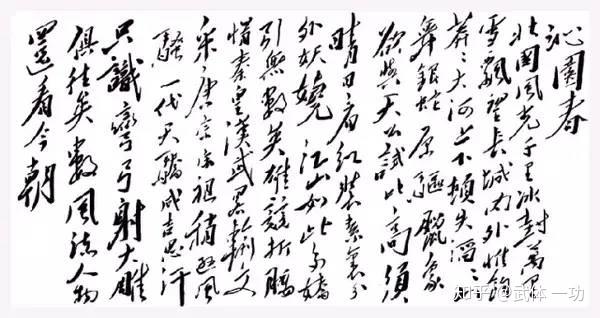 沁園春
北國風光千里冰封萬里
雪飄望長城內外惟餘
莽々大河上下頓失滔々
舞銀蛇原驅臘象
欲與天公試比高須
晴日看紅裝素裹分
外妖嬈江山如此多嬌
引無數英雄競折腰
惜秦皇漢武略輸文
采唐宗宋祖稍遜風
騷一代天驕成吉思汗
只識彎弓射大雕
俱往矣數風流人物
還看今朝
知乎 @武体一功